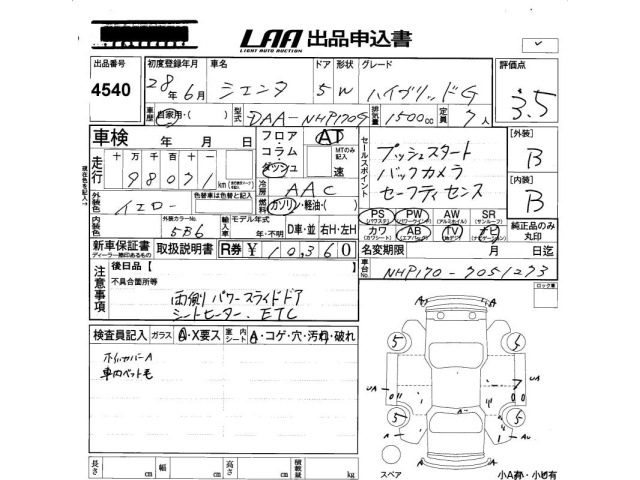 LAA 出品申込書
LIGHT AUTO AUCTION
出品番号 初度登録年月 車名 ドア 形状 グレード 評価点
4540 28年6月 シエンタ 5 W ハイブリッドG 3.5
車歴 自家用・( ) 型式 DAA-NHP170G 排気量 1500cc 定員 7人
車検 年 月 日 フロア・コラム・ダッシュ AT MTのみ記入 速 セールスポイント プッシュスタート 【外装】 B
走行 十万千百十一 98071 km 冷房 AAC バックカメラ
現在色を記入 外装色 イエロー 色替車は色替と記入 燃料 ガソリン・軽油・( ) セーフティセンス 【内装】 B
内装色 外装カラーNo. 5B6 輸入車 モデル年式 年・不明 D車・並 右H・左H
PS (パワステ) PW (パワーウインド) AW (アルミホイル) SR (サンルーフ)
カワ (カワシート) AB (エアバック) TV ナビ (ナビゲーション) 純正品のみ丸印
新車保証書 ディーラー捺印あるもの 取扱説明書 R券 ¥ 10,360 名変期限 月 日迄
注意事項 後日品【 】 車台No. NHP170-7051273
不具合箇所等 ロック番
両側パワースライドドア
シートヒーター、ETC
検査員記入 ガラス A・X要ス 室内シート A・コゲ・穴・汚れ・破れ
ホイルカバーA
車内ペット毛
5 5
UA UA 7
5 5
A A AU
長さ cm 幅 cm 高さ cm 積載量 kg スペア 小A有・小U有